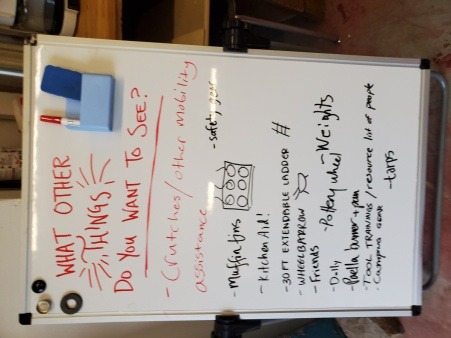 WHAT OTHER
THINGS
DO YOU WANT TO SEE?
- Crutches/other mobility
assistance
- safety gear
- Muffin tins
- Kitchen Aid!
- 30 FT EXTENDABLE LADDER
- WHEELBARROW
- Friends
- Pottery wheel
- Weights
- Dolly
- Paella burner + pan
- TOOL TRAININGS / resource list of people
- CAMPING GEAR
- tarps